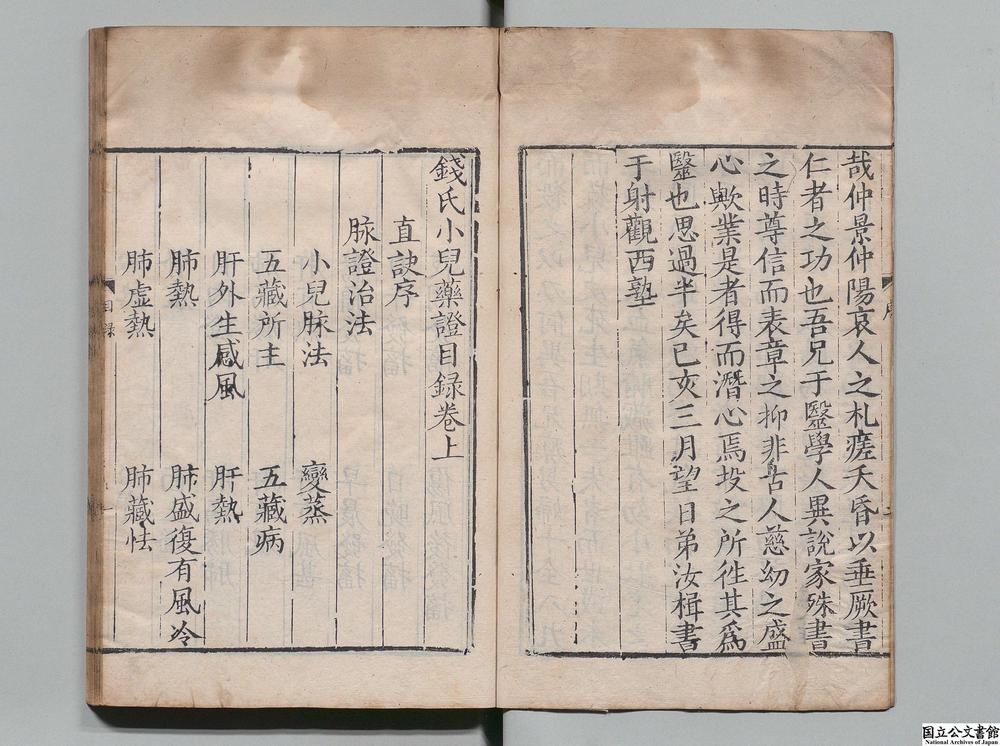 哉仲景仲陽哀人之札瘥夭昏以垂厥書
仁者之功也吾兄于毉學人異說家殊書
之時尊信而表章之抑非古人慈幼之盛
心歟業是者得而潛心焉投之所徃其爲
毉也思過半矣己亥三月望日弟汝楫書
于射觀西塾
序
錢氏小兒藥證目録卷上
直訣序
脉證治法
小兒脉法 變蒸
五藏所主 五藏病
肝外生感風 肝熱
肺熱 肺盛復有風冷
肺虛熱 肺藏怯
目録
国立公文書館
National Archives of Japan